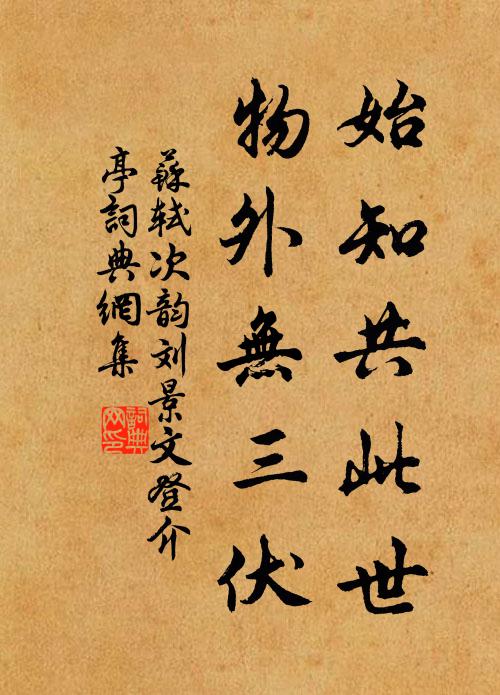 始知共此世
物外無三伏
蘇軾次韵刘景文登介
亭詞典網集
詞典
网印